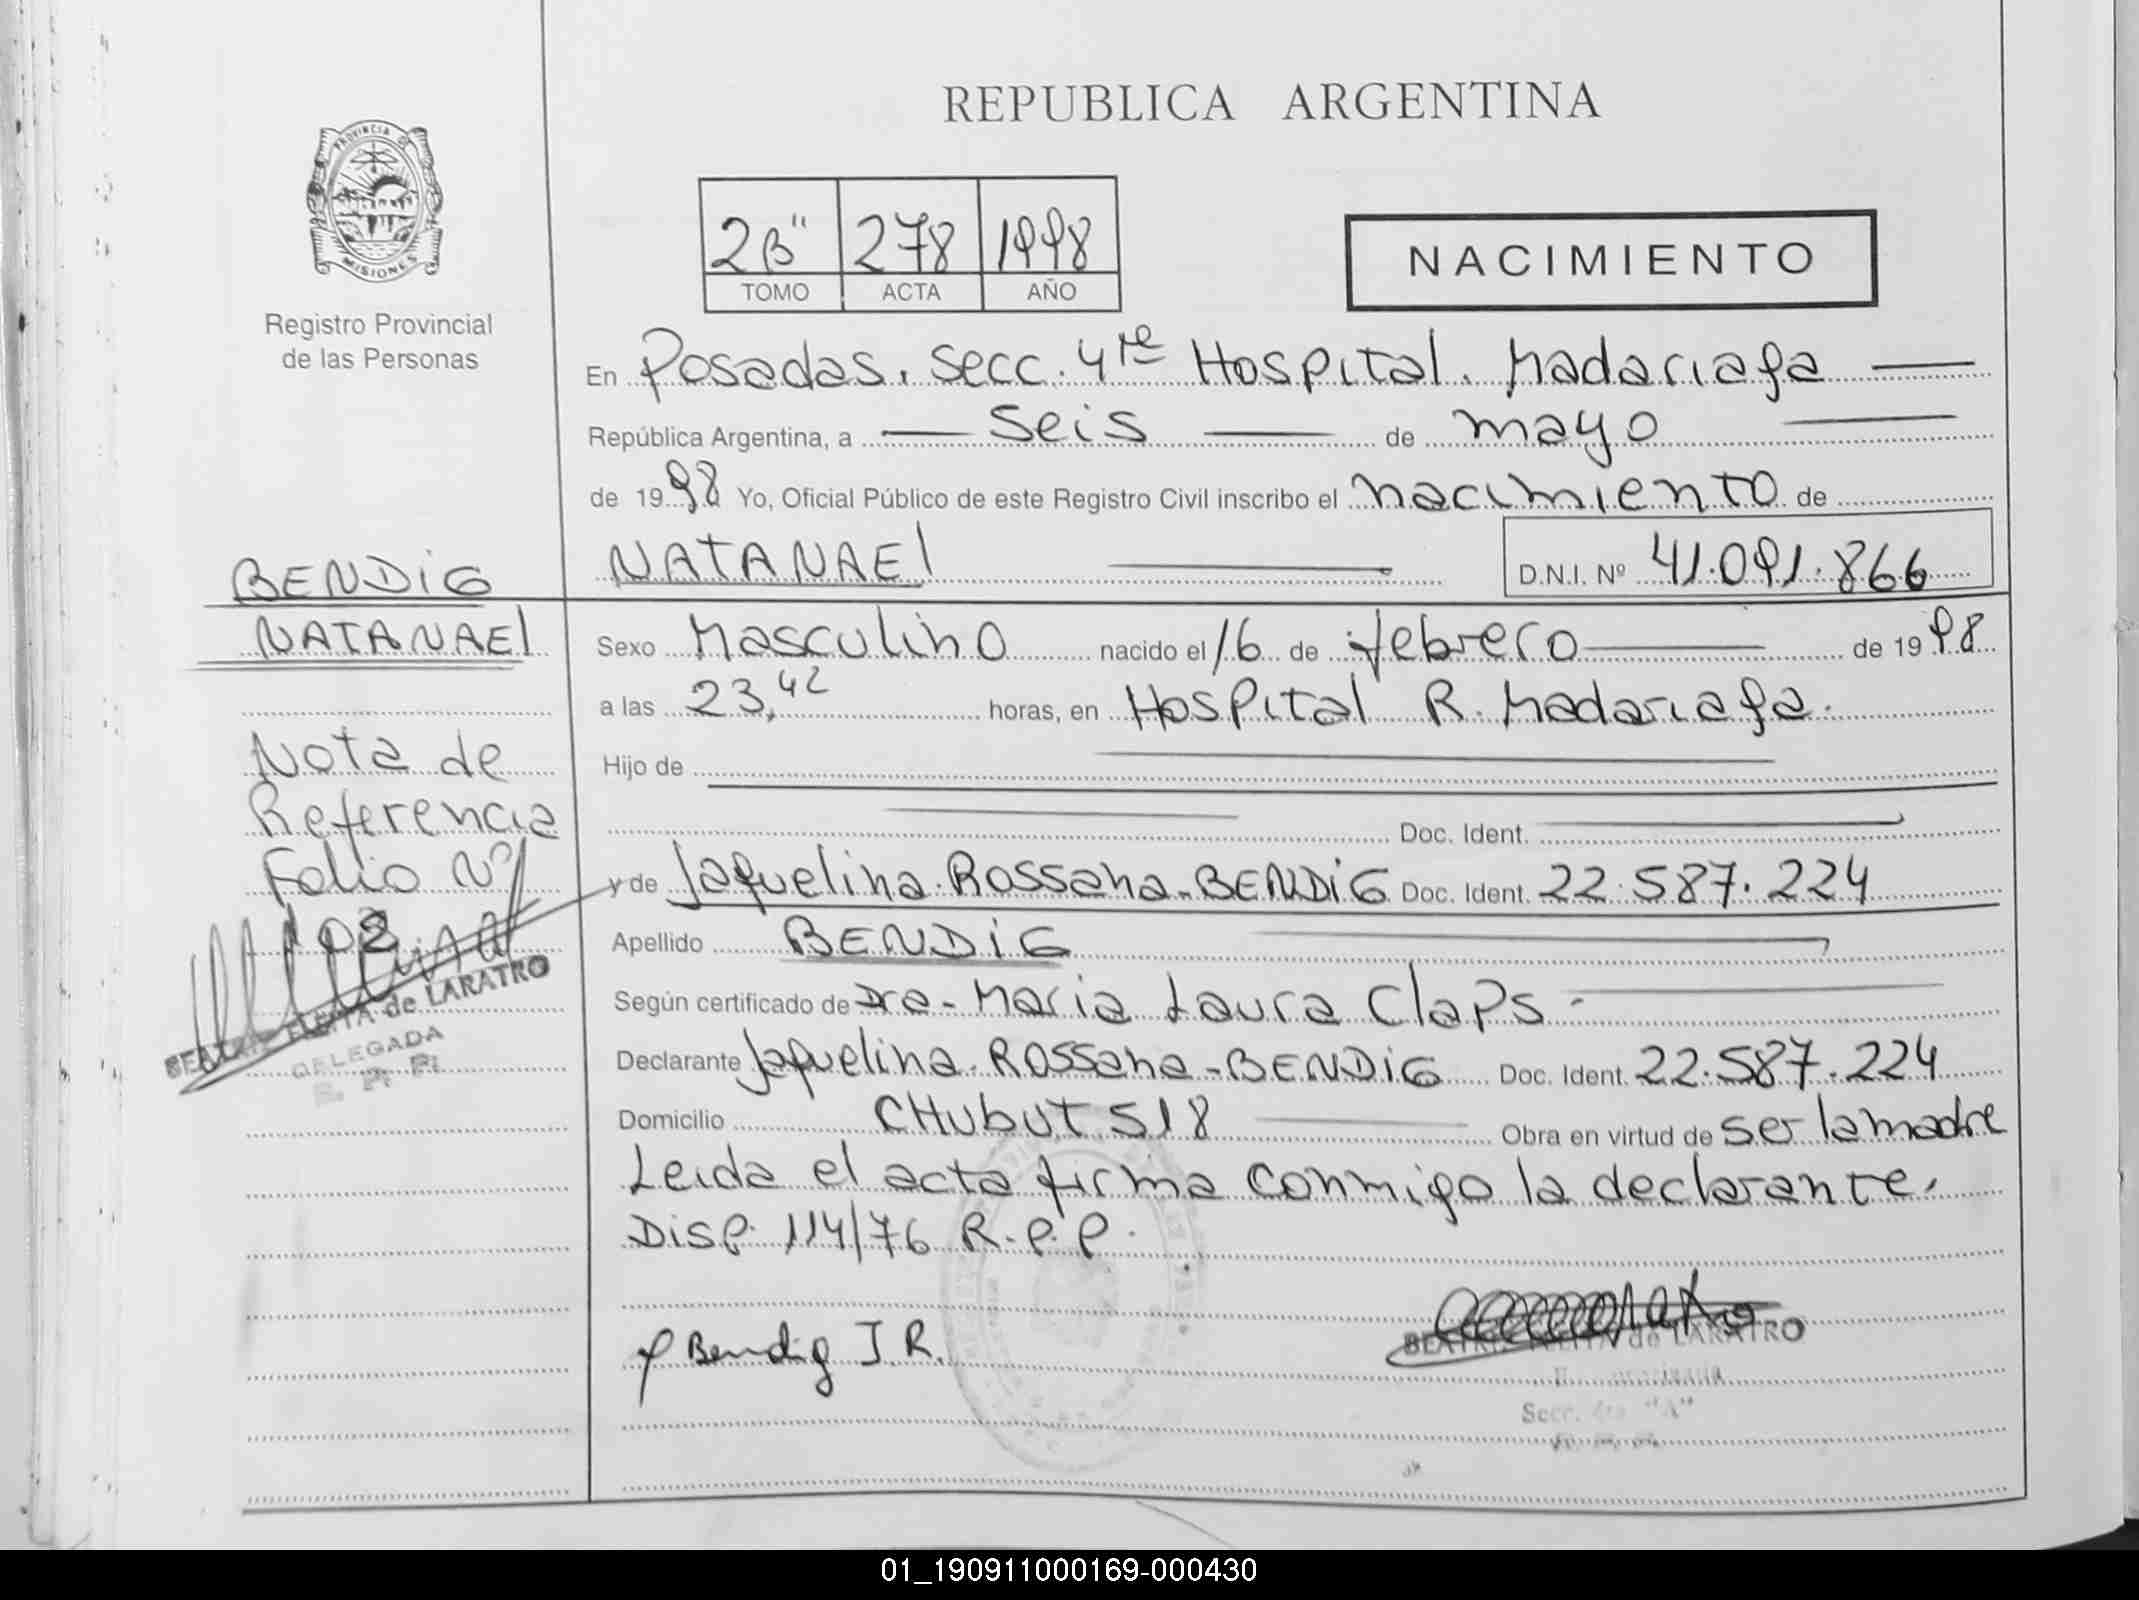 REPUBLICA ARGENTINA
PROVINCIA DE
MISIONES
Registro Provincial
de las Personas
2B" 278 1998
TOMO ACTA AÑO
NACIMIENTO
En Posadas, Secc. 4te Hospital. Madariaga
República Argentina, a seis de mayo
de 1998 Yo, Oficial Público de este Registro Civil inscribo el nacimiento de
NATANAEl D.N.I. Nº 41.091.866
BENDiG
NATANAEl
Sexo Masculino nacido el 16 de febrero de 1998
a las 23,42 horas, en Hospital R. Madariaga.
Hijo de
Doc. Ident.
y de Jaquelina Rossana BENDiG Doc. Ident. 22.587.224
Apellido BENDiG
Según certificado de Dra. Maria Laura Claps
Declarante Jaquelina Rossana BENDiG Doc. Ident. 22.587.224
Domicilio CHubuT 518 Obra en virtud de ser la madre
Leida el acta firma conmigo la declarante.
Disp. 114/76 R.P.P.
Nota de
Referencia
Folio Nº
102
de LARATRO
DELEGADA
Bendig J.R.
de LARATRO
Secc. "A"
01_190911000169-000430